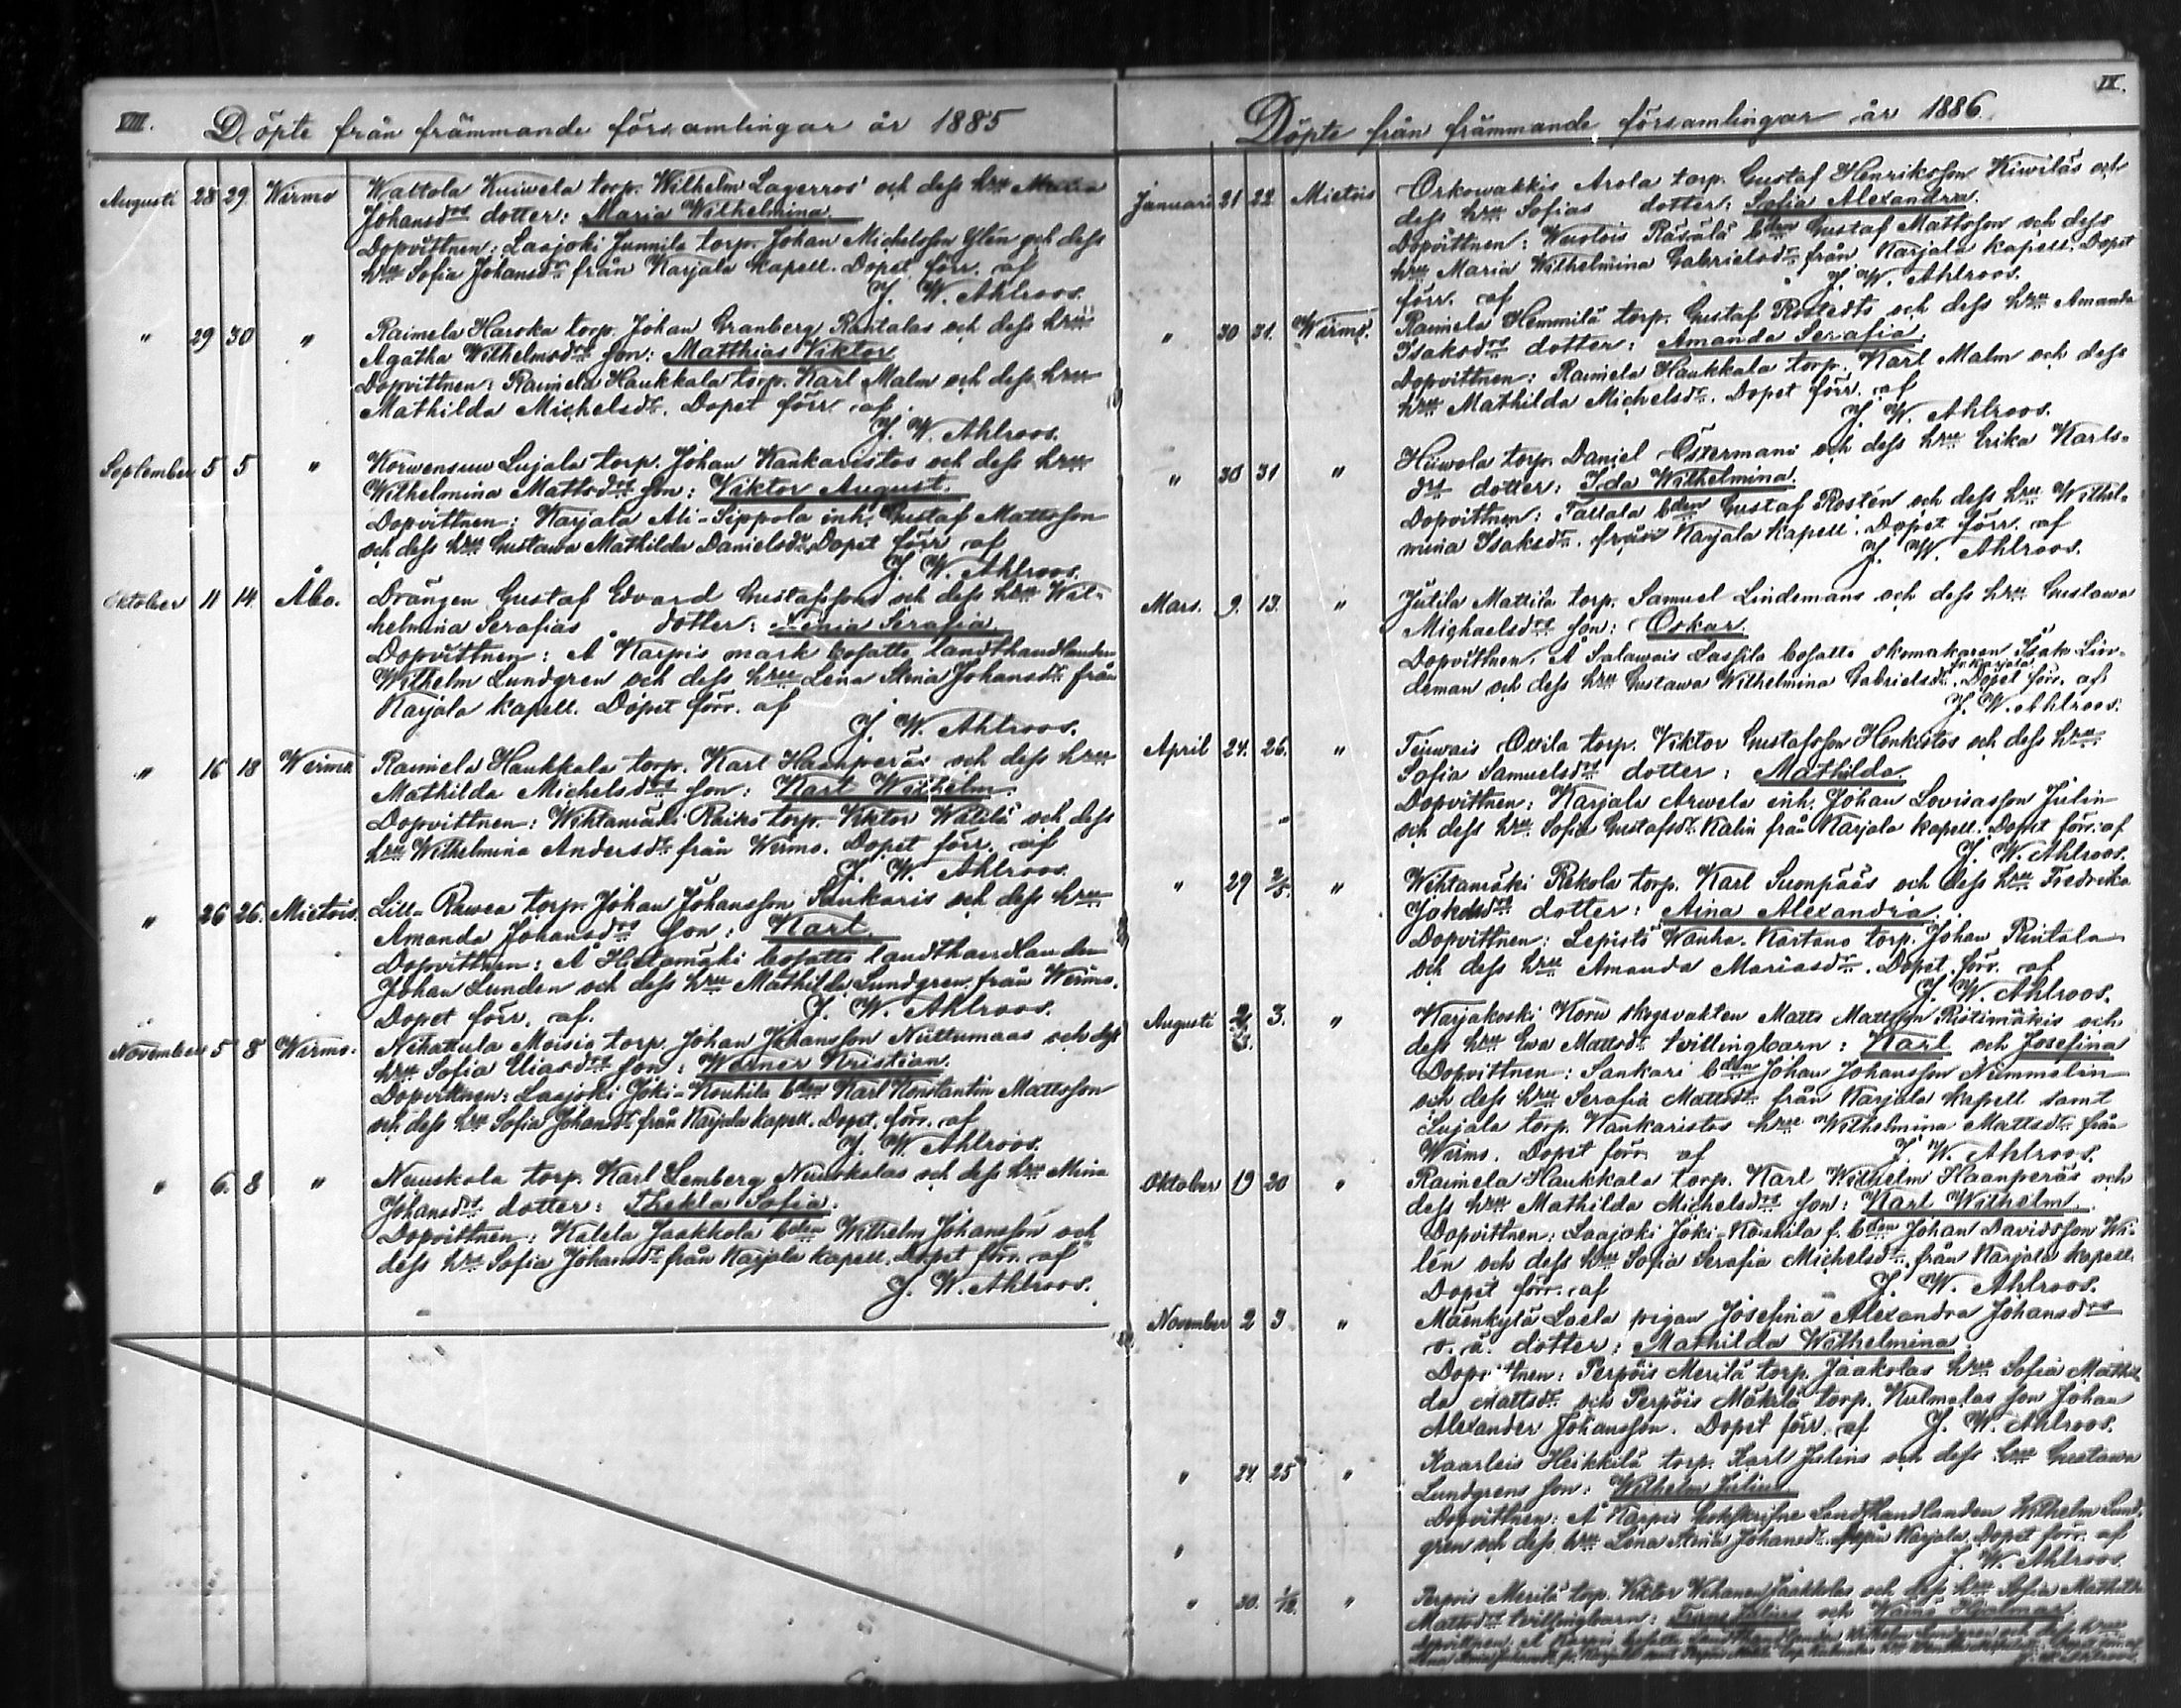 VIII. Döpte från främmande församlingar år 1885
Augusti 28 29 Wirmo Wattola Kuiwela torp. Wilhelm Lagerros' och dess hru
Johansdrs dotter: Maria Wilhelmina.
Dopvittnen: Laajoki Junnila torp. Johan Michelsson Glén och dess
hru Sofia Johansdr från Karjala kapell. Dopet förr. af
J. W. Ahlroos.
" 29 30 " Raimela Haroka torp. Johan Granberg Rantalas och dess hrus
Agatha Wilhelmsdrs son: Matthias Viktor
Dopvittnen: Raimela Haukkala torp. Karl Malm och dess hru
Mathilda Michelsdr. Dopet förr. af
J. W. Ahlroos.
September 5 5 " Korwensuu Lujala torp. Johan Kankaristos och dess hrus
Wilhelmina Mattsdrs son: Viktor August.
Dopvittnen: Karjala Ali-Sippola inh. Gustaf Mattsson
och dess hru Gustawa Mathilda Danielsdr. Dopet förr af
J. W. Ahlroos.
Oktober 11 14. Åbo. Drängen Gustaf Edvard Gustafssons och dess hrus Wil-
helmina Serafias dotter: Serafia.
Dopvittnen: Å Karpis mark bosatte landthandlanden
Wilhelm Lundgren och dess hru Lena Stina Johansdr från
Karjala kapell. Dopet förr. af
J. W. Ahlroos.
" 16 18 Wirmo Raimela Haukkala torp. Karl Haanperäs och dess hrus
Mathilda Michelsdrs son: Karl Wilhelm.
Dopvittnen: Wihtamäki Raiko torp. Viktor Wälilä och dess
hru Wilhelmina Andersdr från Wirmo. Dopet förr. af
J. W. Ahlroos.
" 26 26. Mietois. Lill-Rawea torp. Johan Johansson Sankaris och dess hrus
Amanda Johansdrs son: Karl.
Dopvittnen: Å Hietamäki bosatte landthandlanden
Johan Lunden och dess hru Mathilda Lundgren från Wirmo.
Dopet förr. af. J. W. Ahlroos.
November 5 8 Wirmo. Nihattula Moisio torp. Johan Johansson Niittumaas och dess
hrus Sofia Eliasdrs son: Werner Kristian.
Dopvittnen: Laajoki Joki-Kouhila bden Karl Konstantin Mattsson
och dess hru Sofia Johansdr från Karjala kapell. Dopet. förr. af
J. W. Ahlroos.
" 6. 8 " Nuuskola torp. Karl Lemberg Nuuskolas och dess hrus Mina
Johansdrs dotter: Thekla Sofia.
Dopvittnen: Kalela Jaakkola bden Wilhelm Johansson och
dess hru Sofia Johansdr från Karjala kapell. Dopet förr. af
J. W. Ahlroos.
IX.
Döpte från främmande församlingar år 1886
Januari 21 22 Mietois Orkowakkis Arola torp. Gustaf Henriksson Kiwiläs och
dess hrus Sofias dotter: Sofia Alexandra.
Dopvittnen: Räsälä bden Gustaf Mattsson och dess
hru Maria Wilhelmina Gabrielsdr från Karjala kapell. Dopet
förr. af J. W. Ahlroos.
" 30 31. Wirmo. Raimela Hemmilä torp. Gustaf Rostedts och dess hrus Amanda
Isaksdrs dotter: Amanda Serafia.
Dopvittnen: Raimela Haukkala torp. Karl Malm och dess
hru Mathilda Michelsdr. Dopet förr. af
J. W. Ahlroos.
" 30 31 " Hüwola torp. Daniel Östermans och dess hrus Erika Karls-
drs dotter: Ida Wilhelmina.
Dopvittnen: Tallala bden Gustaf Rostén och dess hru Wilhel-
mina Isaksdr. från Karjala kapell. Dopet förr. af
J. W. Ahlroos.
Mars. 9. 13. " Jutila Mattila torp. Samuel Lindemans och dess hrus Gustawa
Michaelsdrs son: Oskar.
Dopvittnen. Å Salawais Lassila bosatte skomakaren Isak Lin-
deman och dess hru Gustawa Wilhelmina Gabrielsdr. fr. Karjala Dopet förr. af.
J. W. Ahlroos.
April 24. 26. " Ottila torp. Viktor Gustafsson Honkistos och dess hrus
Sofia Samuelsdrs dotter: Mathilda.
Dopvittnen: Karjala Arwela inh. Johan Lovisasson Julin
och dess hru Sofia Gustafsdr. Kalin från Karjala kapell. Dopet förr. af
J. W. Ahlroos.
" 29 2/5. " Wihtamäki Rekola torp. Karl Suonpääs och dess hrus Fredrika
Jakobsdrs dotter: Aina Alexandria.
Dopvittnen: Lepistö Wanha-Kartano torp. Johan Rintala
och dess hru Amanda Mariasdr. Dopet. förr. af
J. W. Ahlroos.
Augusti 3. " Karjakoski Koru skogsvakten Matts Mattsson Ristimäkis och
dess hrus Ewa Mattsdr tvillingbarn: Karl och Josefina
Dopvittnen: Sankari bden Johan Johansson Nummelin
och dess hru Serafia Mattsdr från Karjala kapell samt
Lujala torp. Kankaristos hru Wilhelmina Mattsdr från
Wirmo. Dopet förr. af J. W. Ahlroos.
Oktober 19 20 " Raimela Haukkala torp. Karl Wilhelm Haanperäs och
dess hrus Mathilda Michelsdrs son: Karl Wilhelm.
Dopvittnen: Laajoki Joki-Kouhila f. bden Johan Davidsson Wi-
lén och dess hru Sofia Serafia Michelsdr. från Karjala kapell.
Dopet förr. af J. W. Ahlroos.
November 2 3 " Mäenkylä Laela pigan Josefina Alexandra Johansdrs
o. ä. dotter: Mathilda Wilhelmina
Dopvittnen: Perpöis Merilä torp. Jaakolas hru Sofia Mathil-
da Mattsdr. och Perpöis Mäkilä torp. Kulmalas son Johan
Alexander Johansson. Dopet förr. af J. W. Ahlroos.
" 24. 25 " Kaarleis Heikkilä torp. Karl Julins och dess hrus Gustawa
Lundgrens son: Wilhelm Julius
Dopvittnen: Å Karpis Landthandlanden Wilhelm Lund-
gren och dess hru Lena Stina Johansdr. från Karjala. Dopet förr. af
" J. W. Ahlroos.
" 30. 1/12. " Perpois Merilä torp. Viktor Jaakkolas och dess hrus Sofia Mathilda
Mattsdrs tvillingbarn: och Wäinö Hjalmar.
Dopvittnen: Å Karpis bosatte Landthandlanden Wilhelm Lundgren och dess hru
Lena Stina Johansdr. fr. Karjala samt
J. W. Ahlroos.